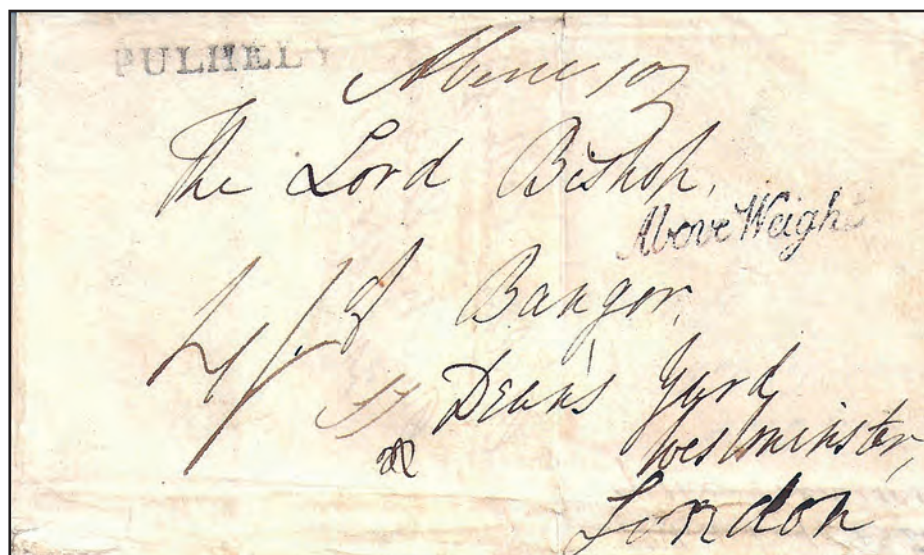 PULHELY
Above
The Lord Bishop,
Above Weight
Bangor,
Dean's Yard
Westminster,
London